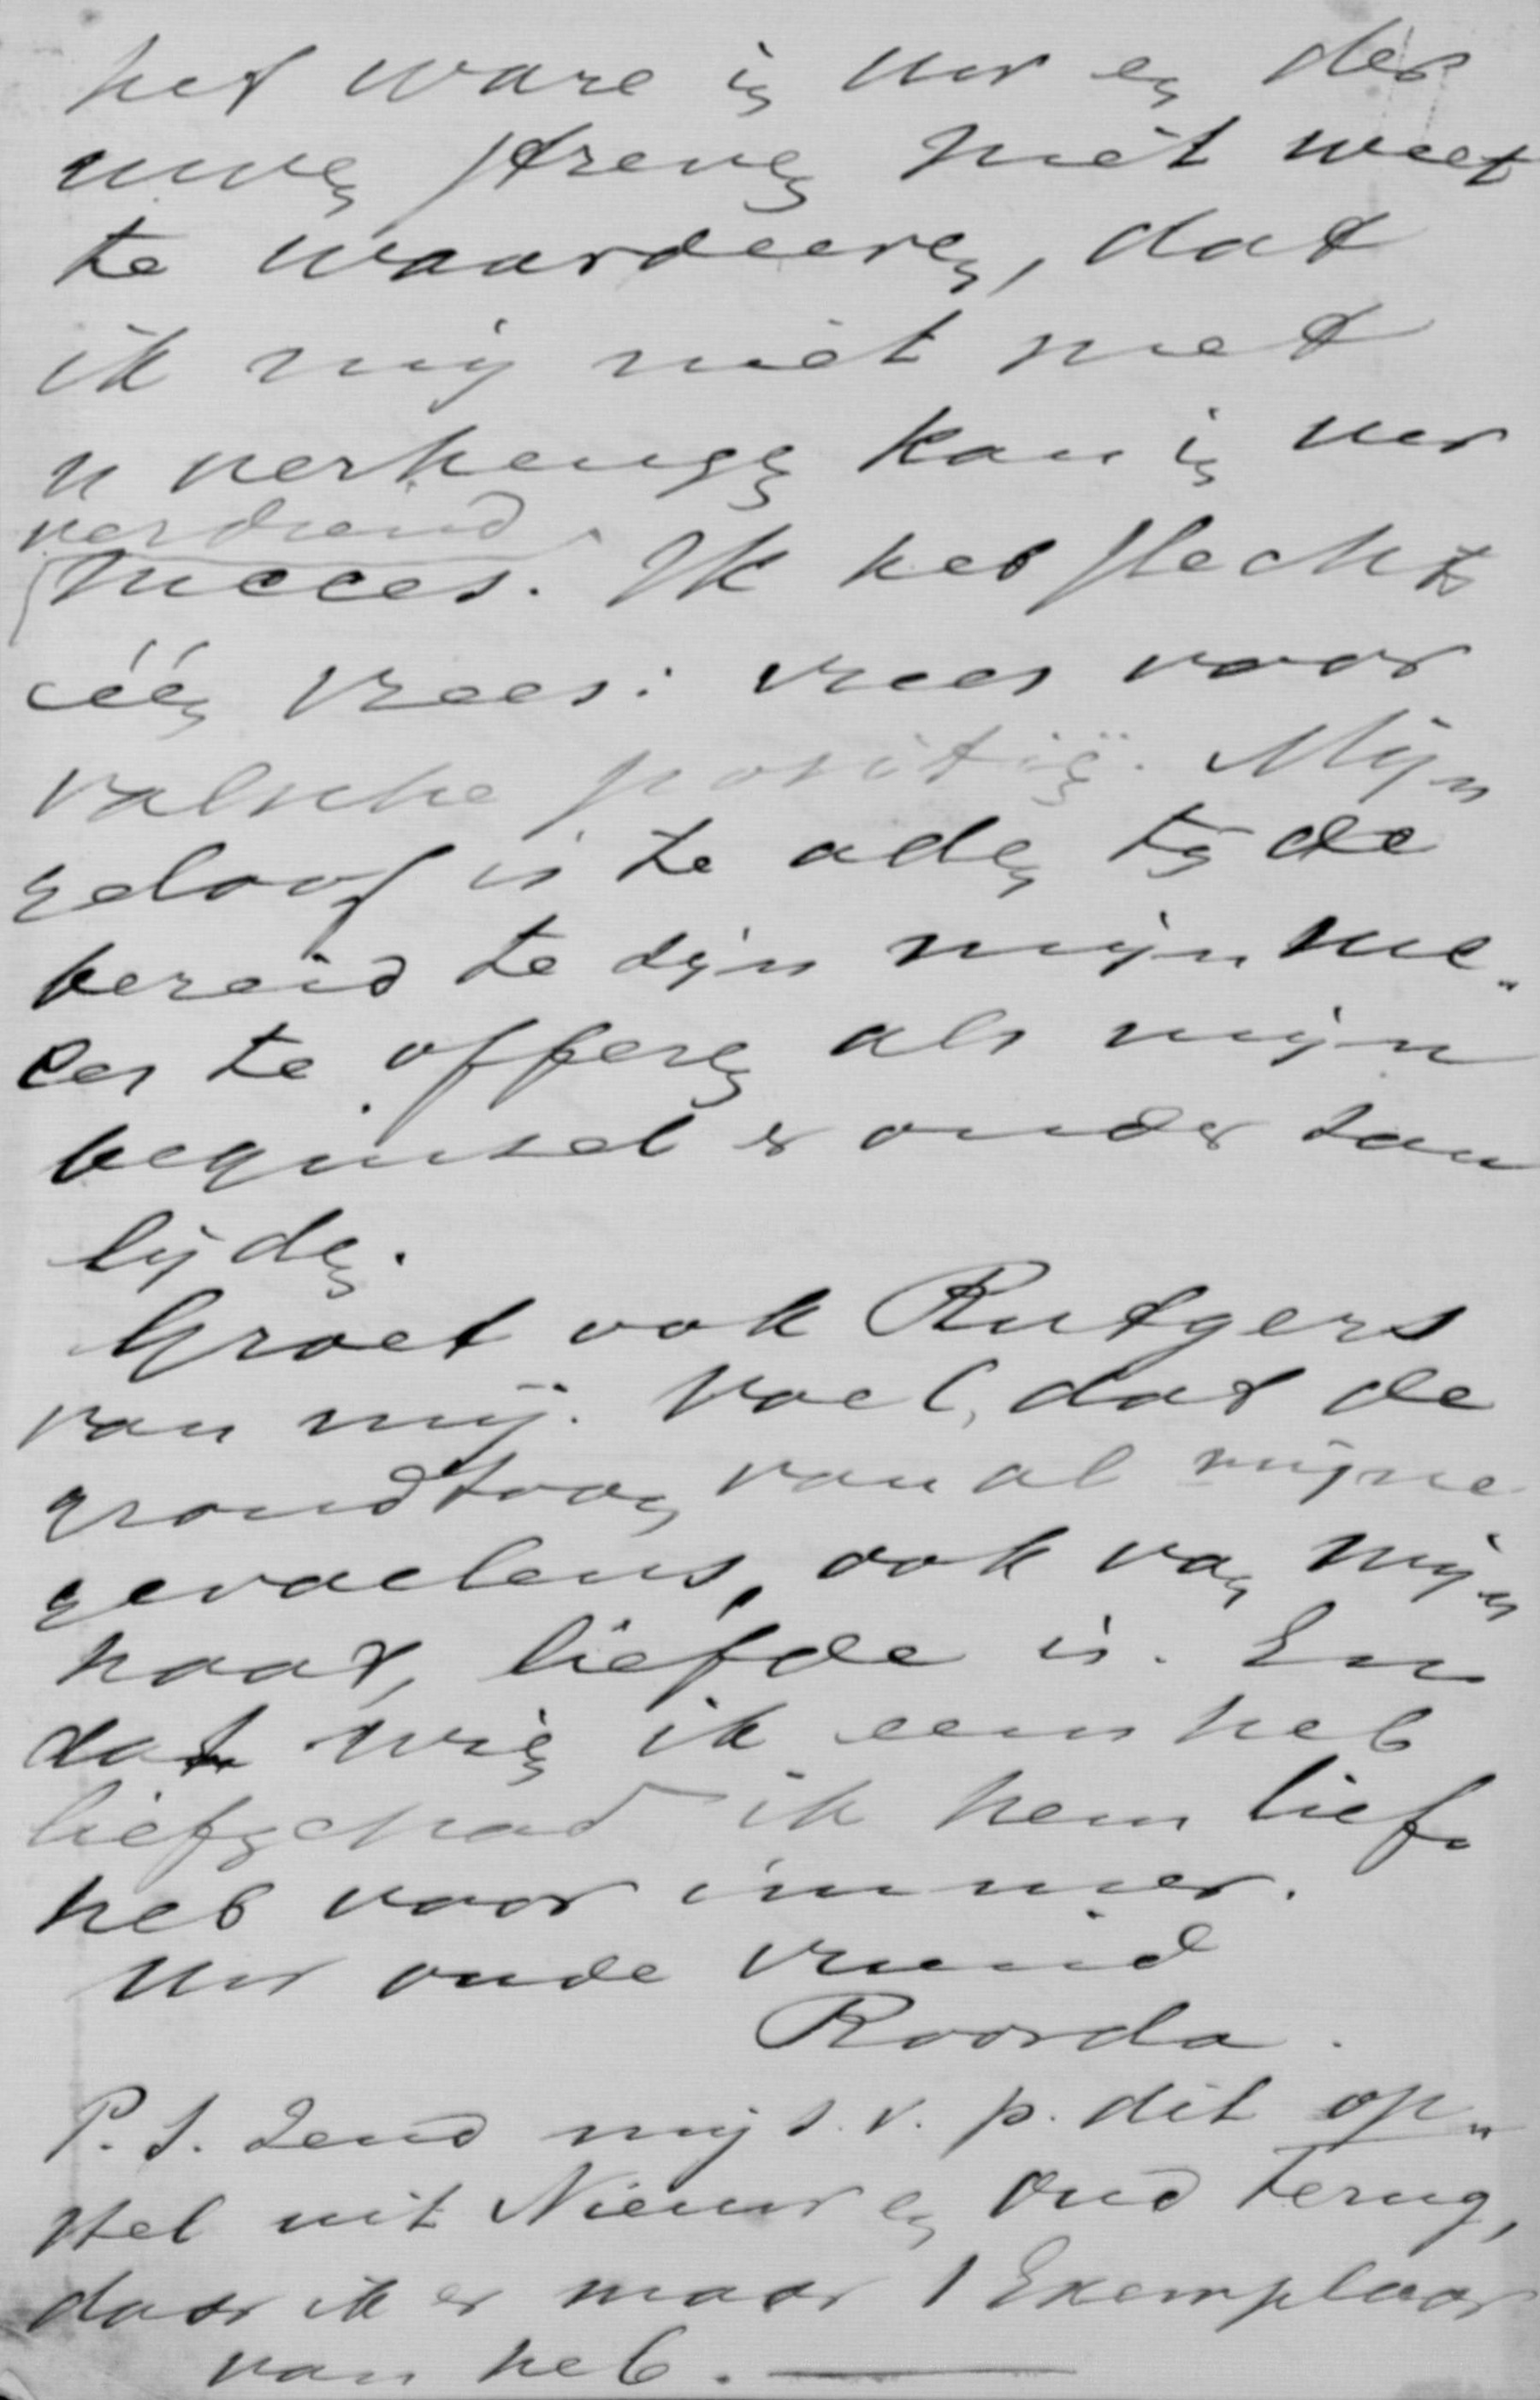 het ware in uw en der
uwen streven niet weet
te waardeeren, dat
ik mij niet met
u verheugen kan in uw
verdiend
succes. Ik heb slechts
één vrees: vrees voor
valsche positiën. Mijn
geloof is te allen tijde
bereid te zijn mijn suc„
ces te offeren als mijn
beginsel er onder zou
lijden.
Groet ook Rutgers
van mij. Voel, dat de
grondtoon van al mijne
gevoelens, ook van mijn
haat, liefde is. En
dat wien ik eens heb
liefgehad ik hem lief„
heb voor immer.
Uw oude vriend
Roorda.
P.S. Zend mij s.v.p. dit op„
stel uit Nieuw en Oud terug,
daar ik er maar 1 Exemplaar
van heb. —